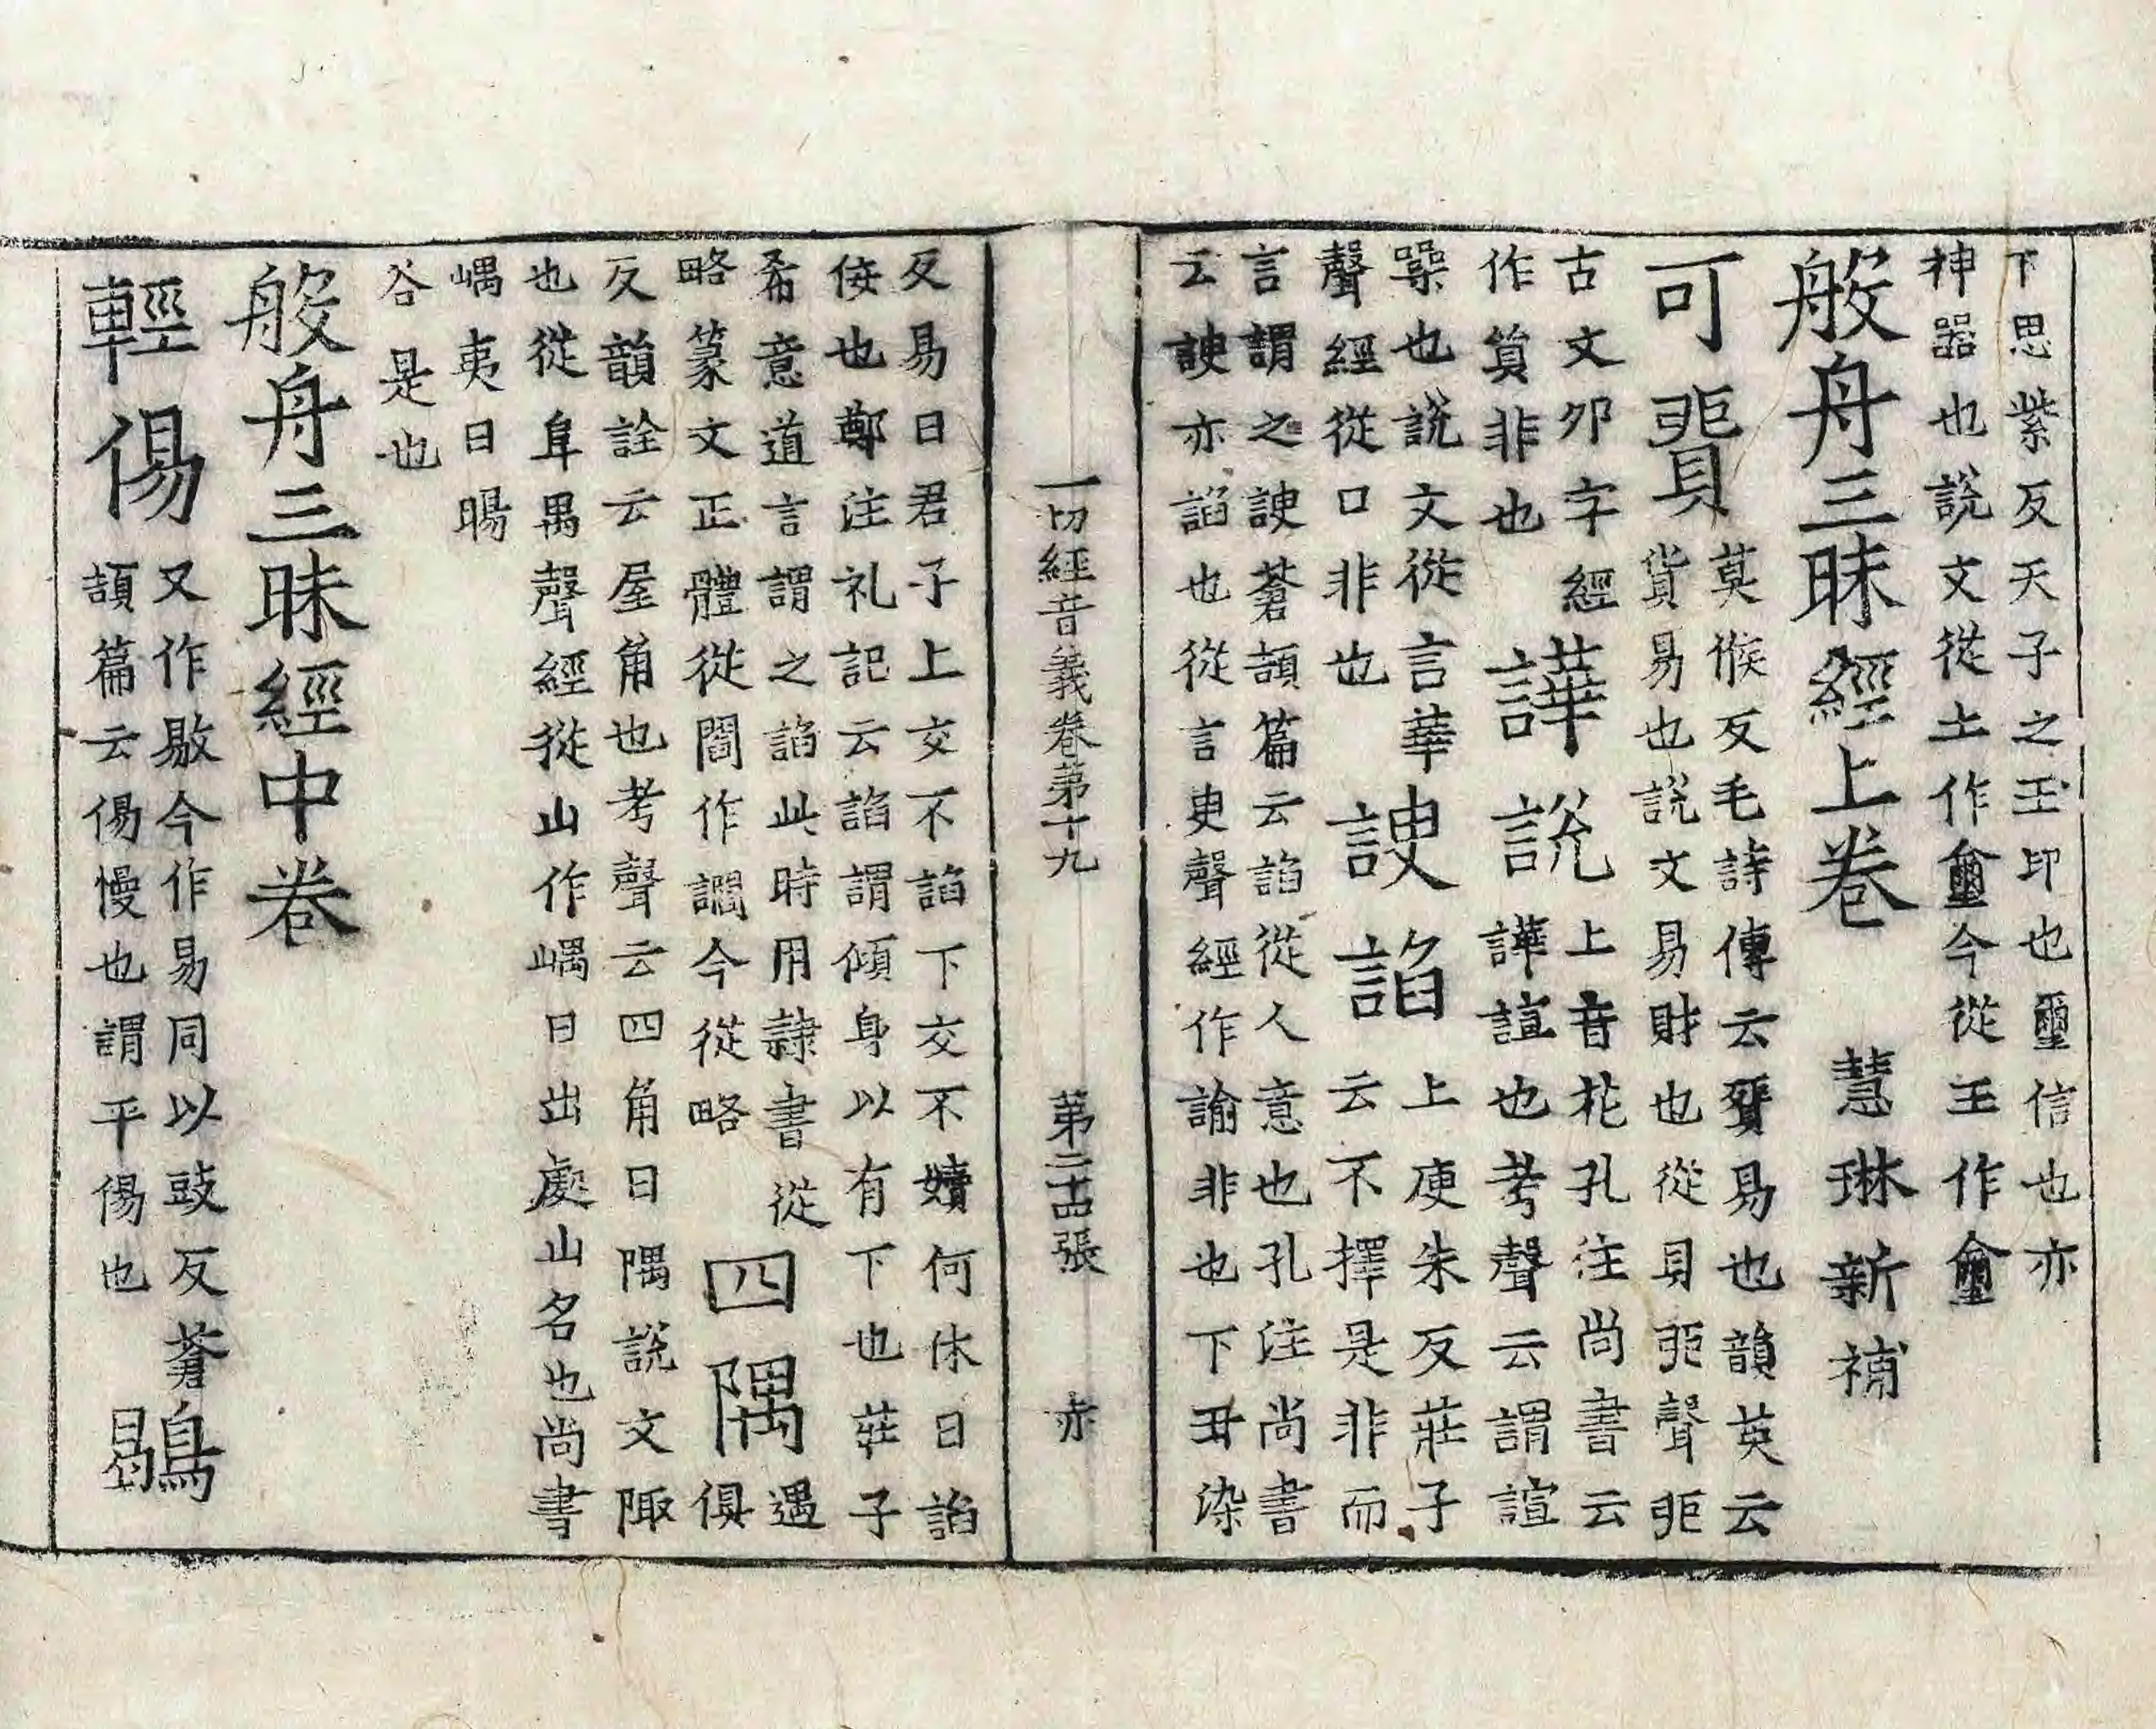 下思紫反天子之玉印也璽信也亦
神器也說文從土作𡐘今從玉作璽
般舟三昧經上卷 慧琳新補
可貿
莫候反毛詩傳云貿易也韻英云
貨易也說文易財也從貝丣聲丣
古文卯字經
作貿非也
譁說
上音花孔注尚書云
譁諠也考聲云謂諠
噪也說文從言華
聲經從口非也
諛諂
上庾朱反莊子
云不擇是非而
言謂之諛蒼頡篇云諂從人意也孔注尚書
云諛亦諂也從言臾聲經作諭非也下丑染
一切經音義卷第十九 第二十四張 赤
反易曰君子上交不諂下交不嬻何休曰諂
佞也鄭注礼記云諂謂傾身以有下也莊子
希意道言謂之諂此時用隷書從
略篆文正體從閻作讇今從略
四隅
遇
俱
反韻詮云屋角也考聲云四角曰隅說文陬
也從阜禺聲經從山作嵎日出處山名也尚書
嵎夷曰暘
谷是也
般舟三昧經中卷
輕傷
又作敭今作易同以豉反蒼
頡篇云傷慢也謂平傷也
鶡